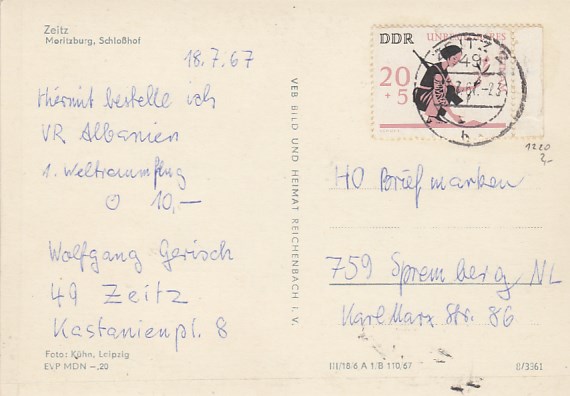 Zeitz
Moritzburg, Schloßhof
18.7.67
Hiermit bestelle ich
VR Albanien
1. Weltraumflug
⊙ 10,—
Wolfgang Gerisch
49 Zeitz
Kastanienpl. 8
Foto: Kühn, Leipzig
EVP MDN –,20
VEB BILD UND HEIMAT REICHENBACH i. V.
DDR
20
+ 5
ZEITZ 2
49
1220
2,-
HO Briefmarken
759 Spremberg NL
Karl Marx Str. 86
III/18/6 A 1/B 110/67
8/3361